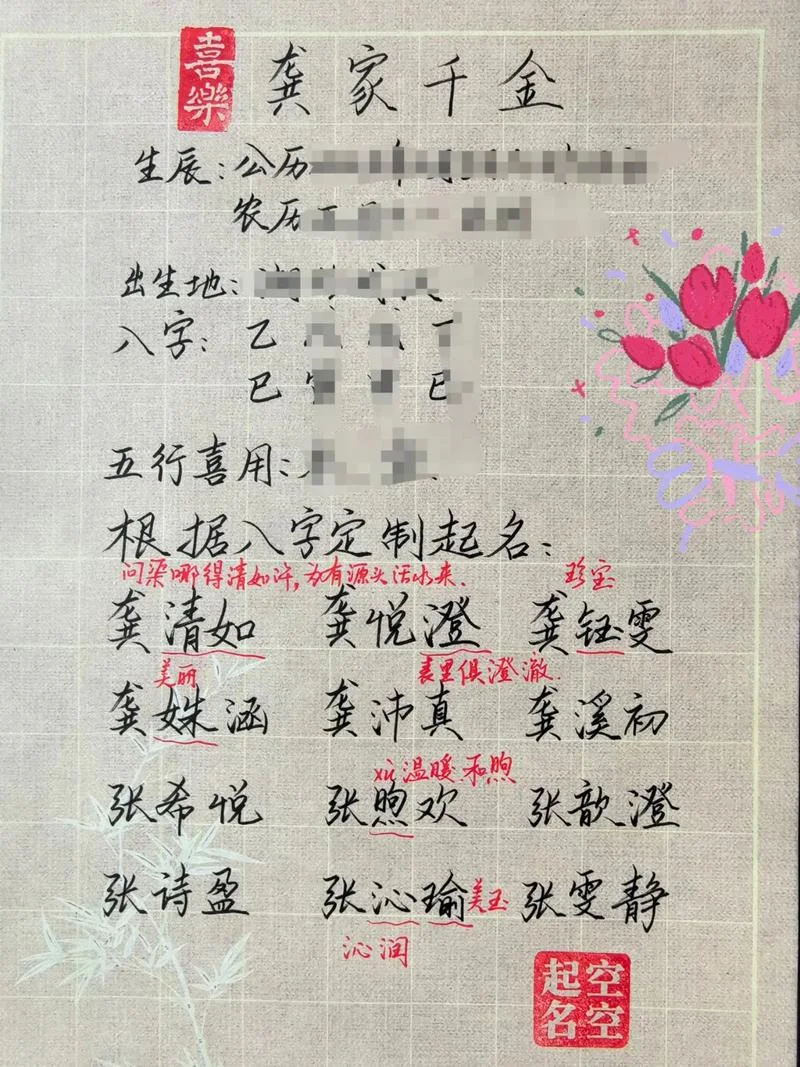 喜樂
龚家千金
生辰：公历
农历
出生地：
八字：乙
巳
五行喜用：
根据八字定制起名：
问渠哪得清如许，为有源头活水来.
珍宝
龚清如 龚悦澄 龚钰雯
美丽
表里俱澄澈.
龚姝涵 龚沛真 龚溪初
温暖和煦
张希悦 张煦欢 张歆澄
张诗盈 张沁瑜 张雯静
美玉
沁润
空空起名